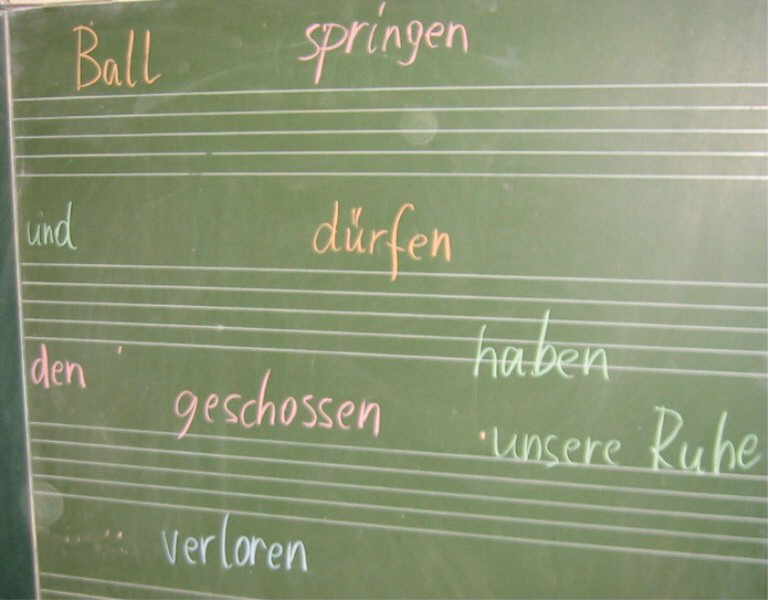 Ball springen
und dürfen
den haben
geschossen
unsere Ruhe
verloren